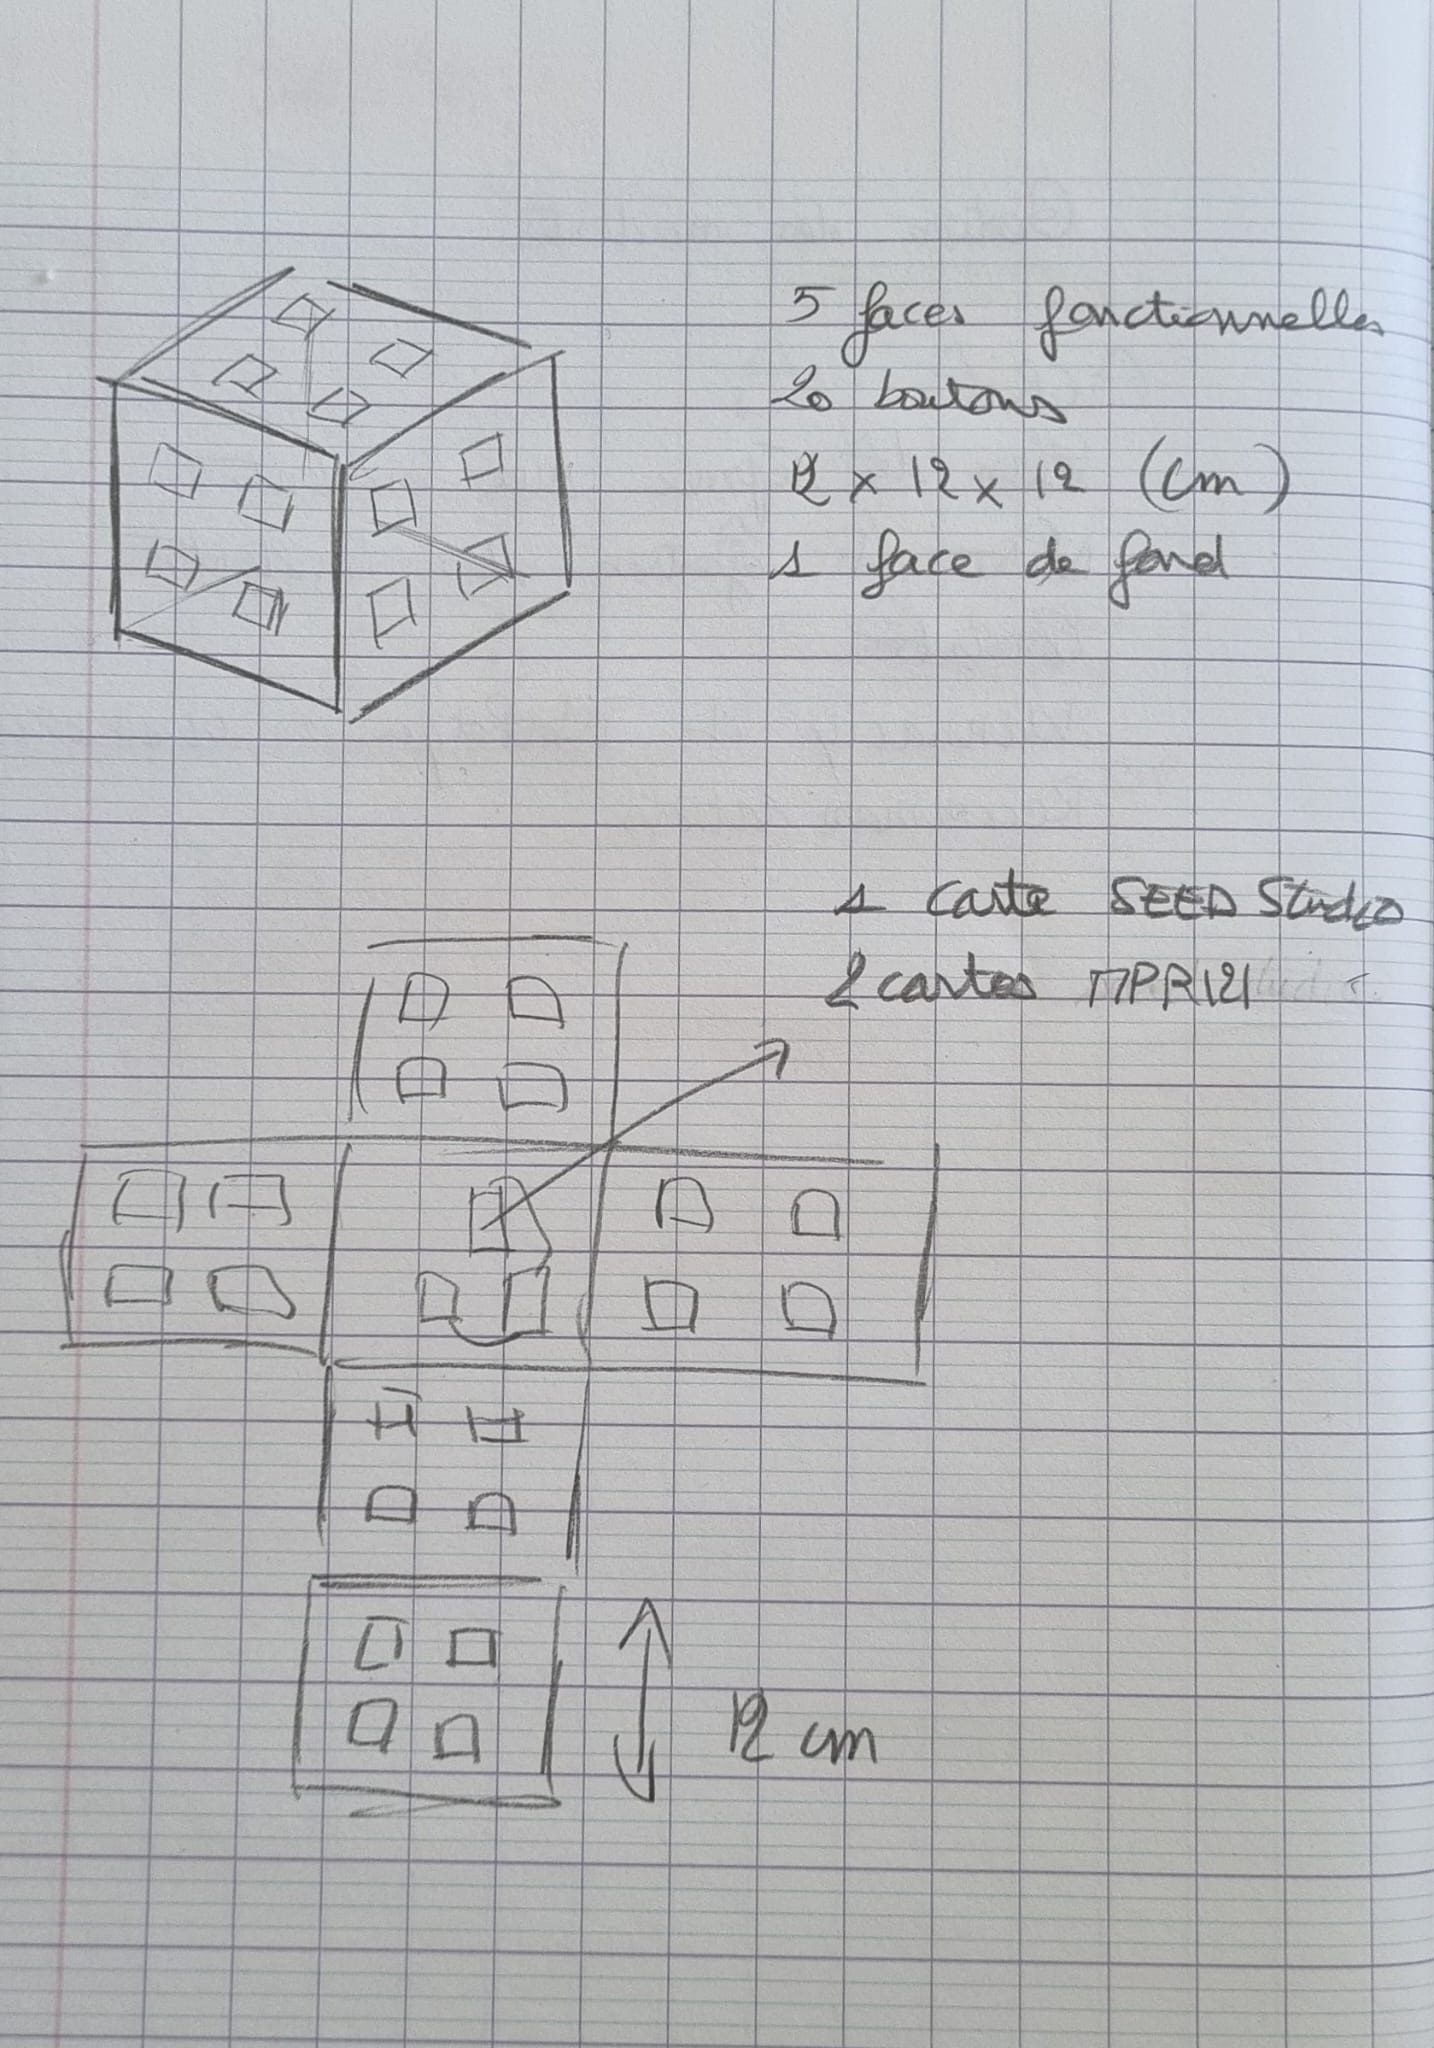 5 faces fonctionnelles
20 boutons
12 x 12 x 12 (cm)
1 face de fond
1 carte SEED Studio
2 cartes MPR121
12 cm